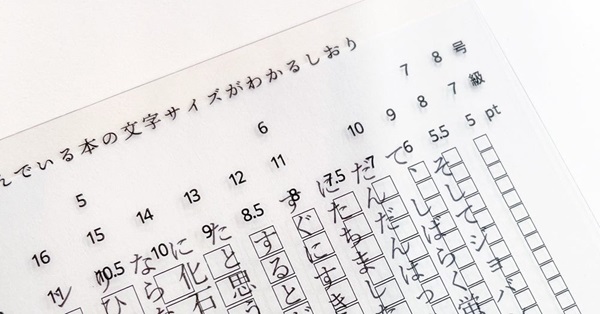 んでいる本の文字サイズがわかるしおり
5 6 7 8 号
16 15 14 13 12 11 10 9 8 7 級
11 10.5 10 9 8.5 8 7.5 7 6 5.5 5 pt
そしてショバ
で、しばらく蛍
だんだんはっ
にたちました
すぐにすき
すると
たと思う
に化石
なら
ひ